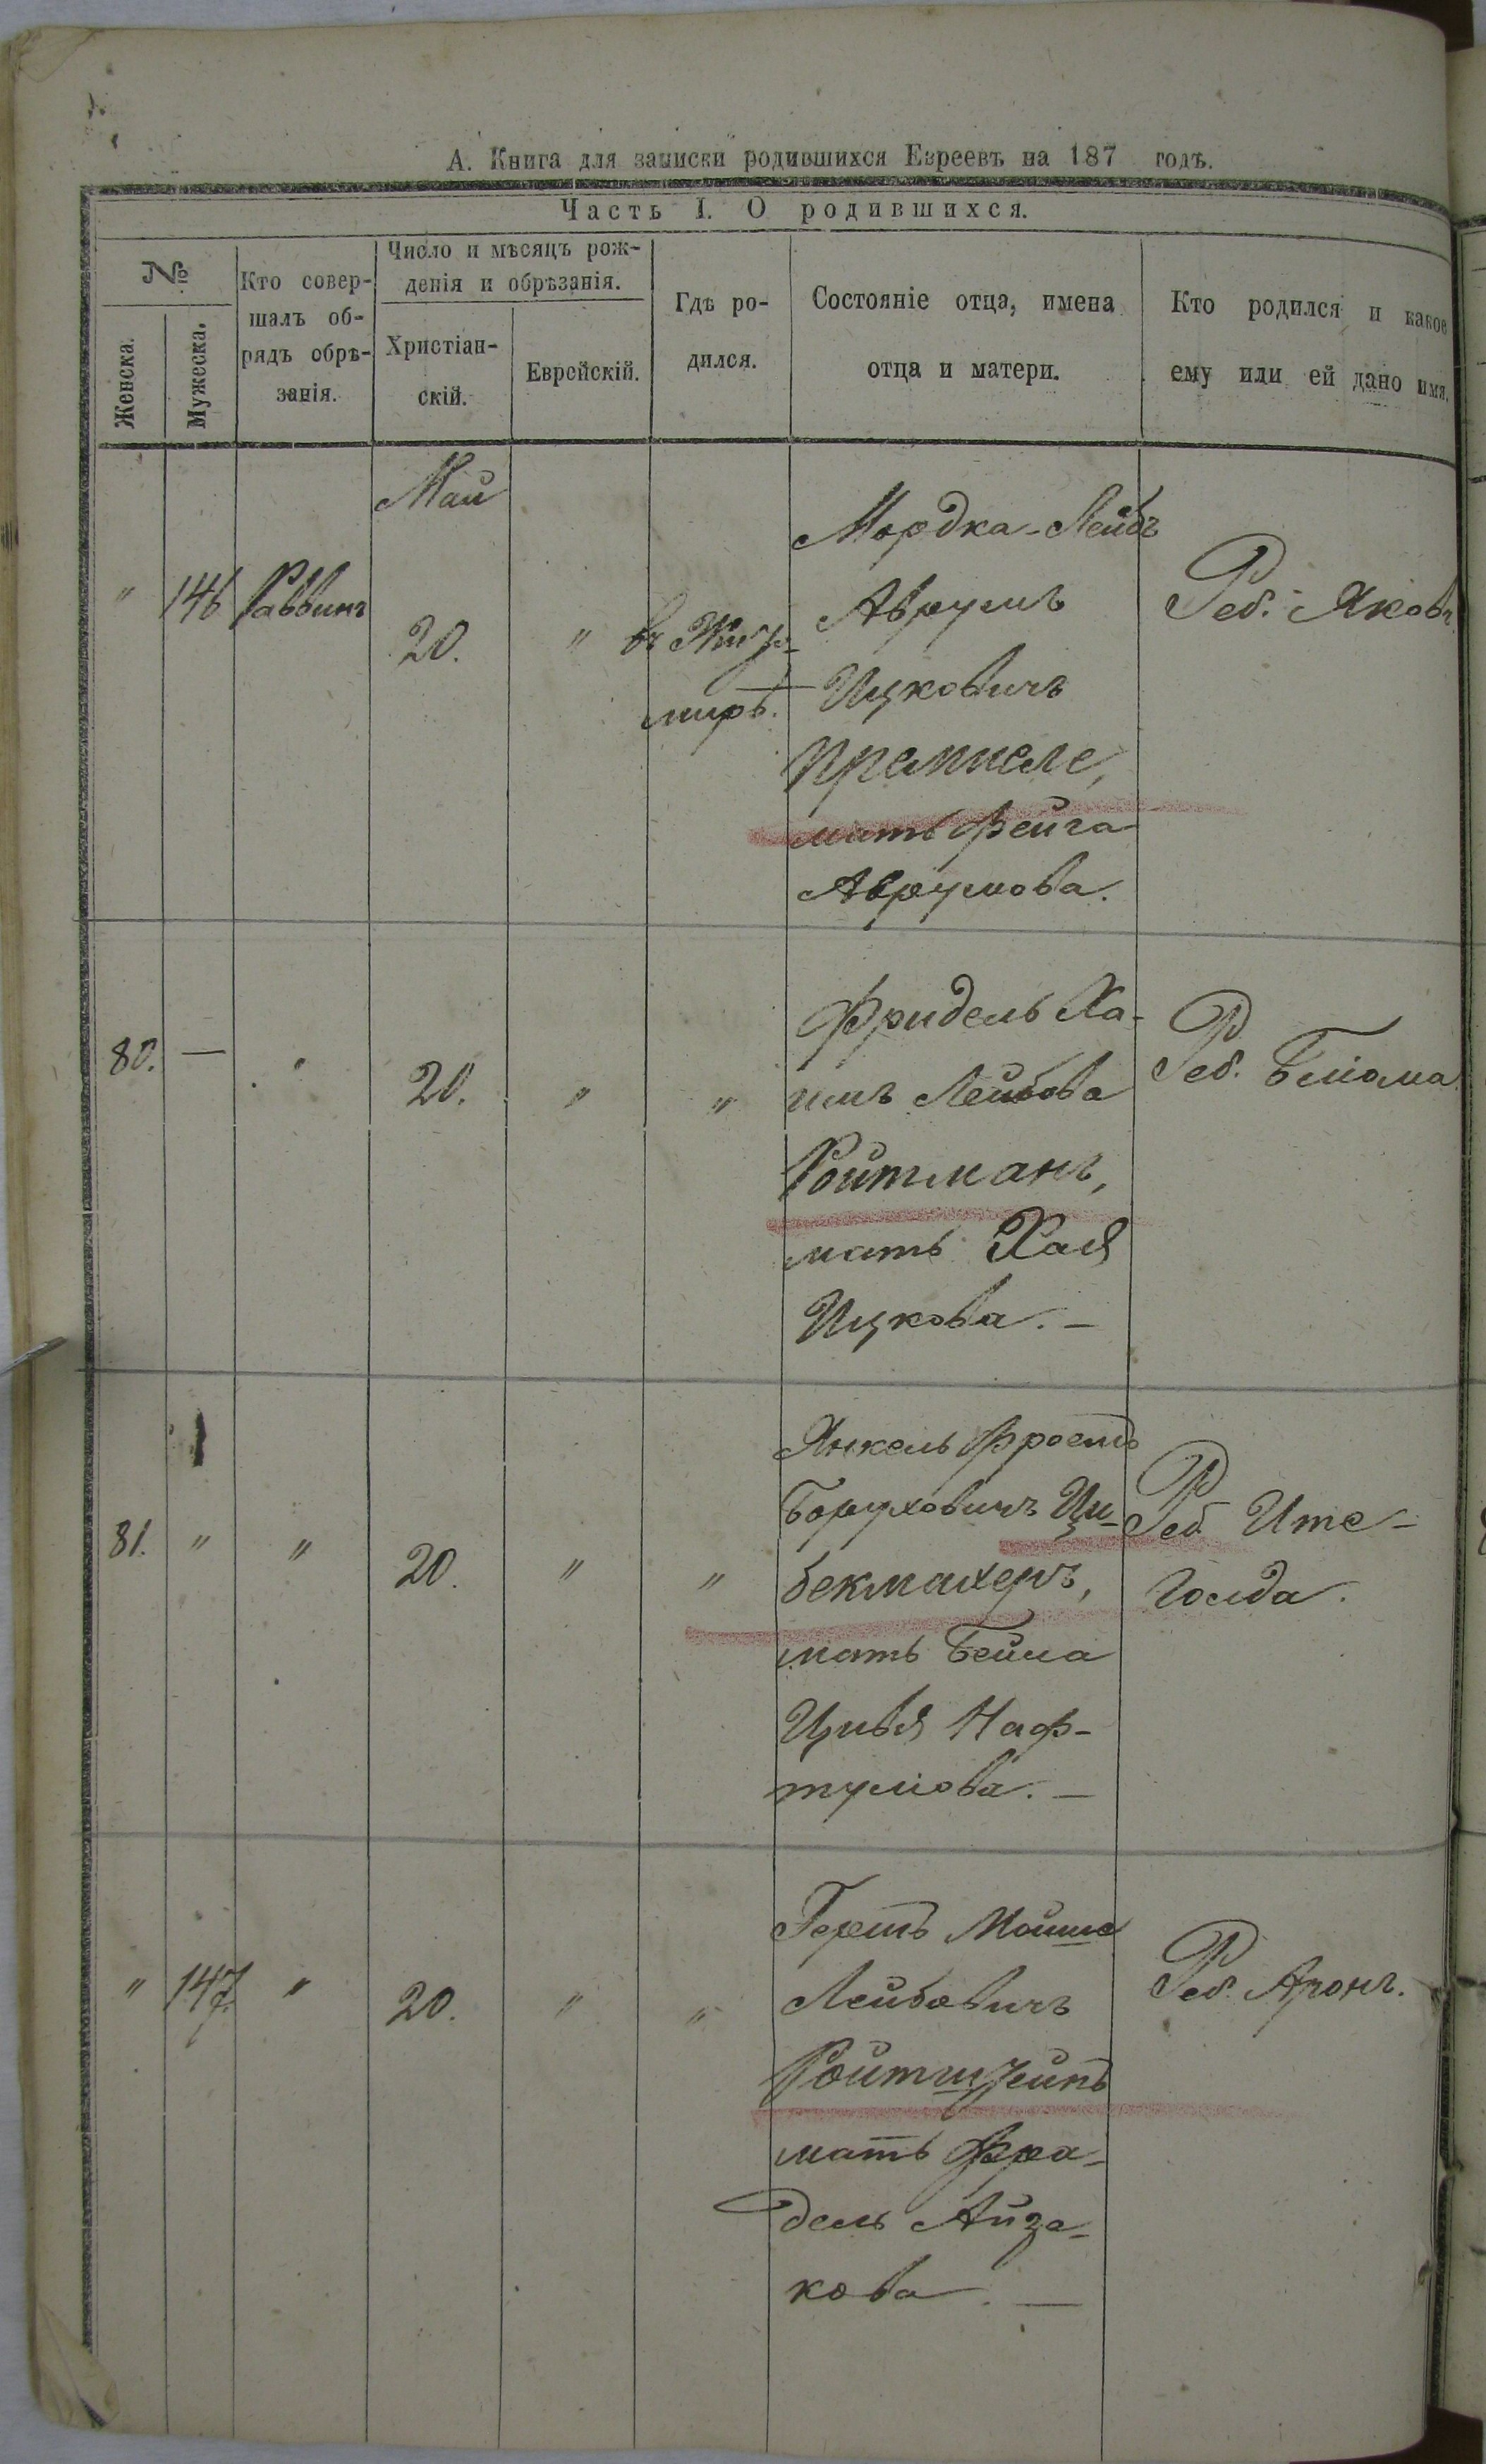 А. Книга для записки родившихся Евреевъ на 187 годъ.
Часть I. О родившихся.
№
Женска.
Мужеска.
Кто совер-
шалъ об-
рядъ обрѣ-
занія.
Число и мѣсяцъ рож-
денія и обрѣзанія.
Христіан-
скій.
Еврейскій.
Гдѣ ро-
дился.
Состояніе отца, имена
отца и матери.
Кто родился и какое
ему или ей дано имя.
Май
" 146 Раввинъ 20. " въ Жито-
мирѣ.
Мордка-Лейбъ
Аврумъ
Ицковичъ
мать Фейга
Аврумова.
Реб. Яковъ.
80. — " 20. " "
Фридель Ха-
имъ Лейбова
Ройтманъ,
мать Хая
Ицкова. —
Реб. Блюма
81. " " 20. " "
Янкель Фроимъ
Боруховичъ Ци-
бекмахеръ,
мать Бейла
Цивья Наф-
тулова. —
Реб Ите-
Голда.
" 147. " 20. " "
Гершъ Мошко
Лейбовичъ
мать Фра-
дель Айзе-
кова. —
Реб. Аронъ.